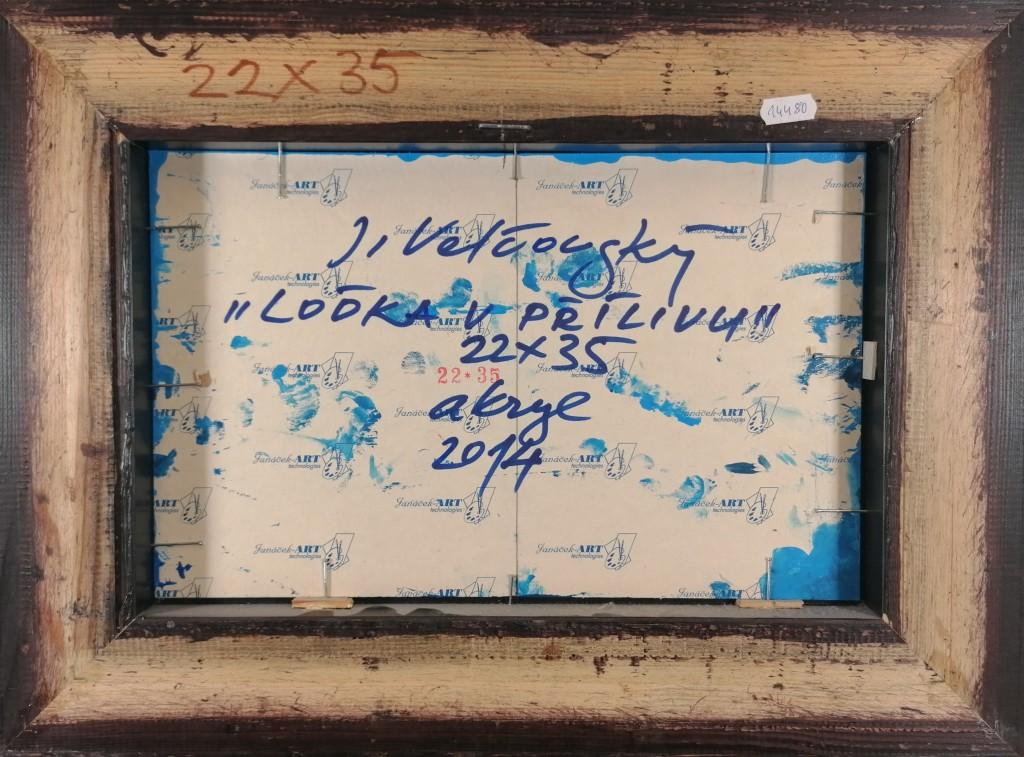 22x35
14480
J. Velčovský
"LOĎKA V PŘÍLIVU"
22x35
22*35
akryl
2014
Janáček-ART
technologies